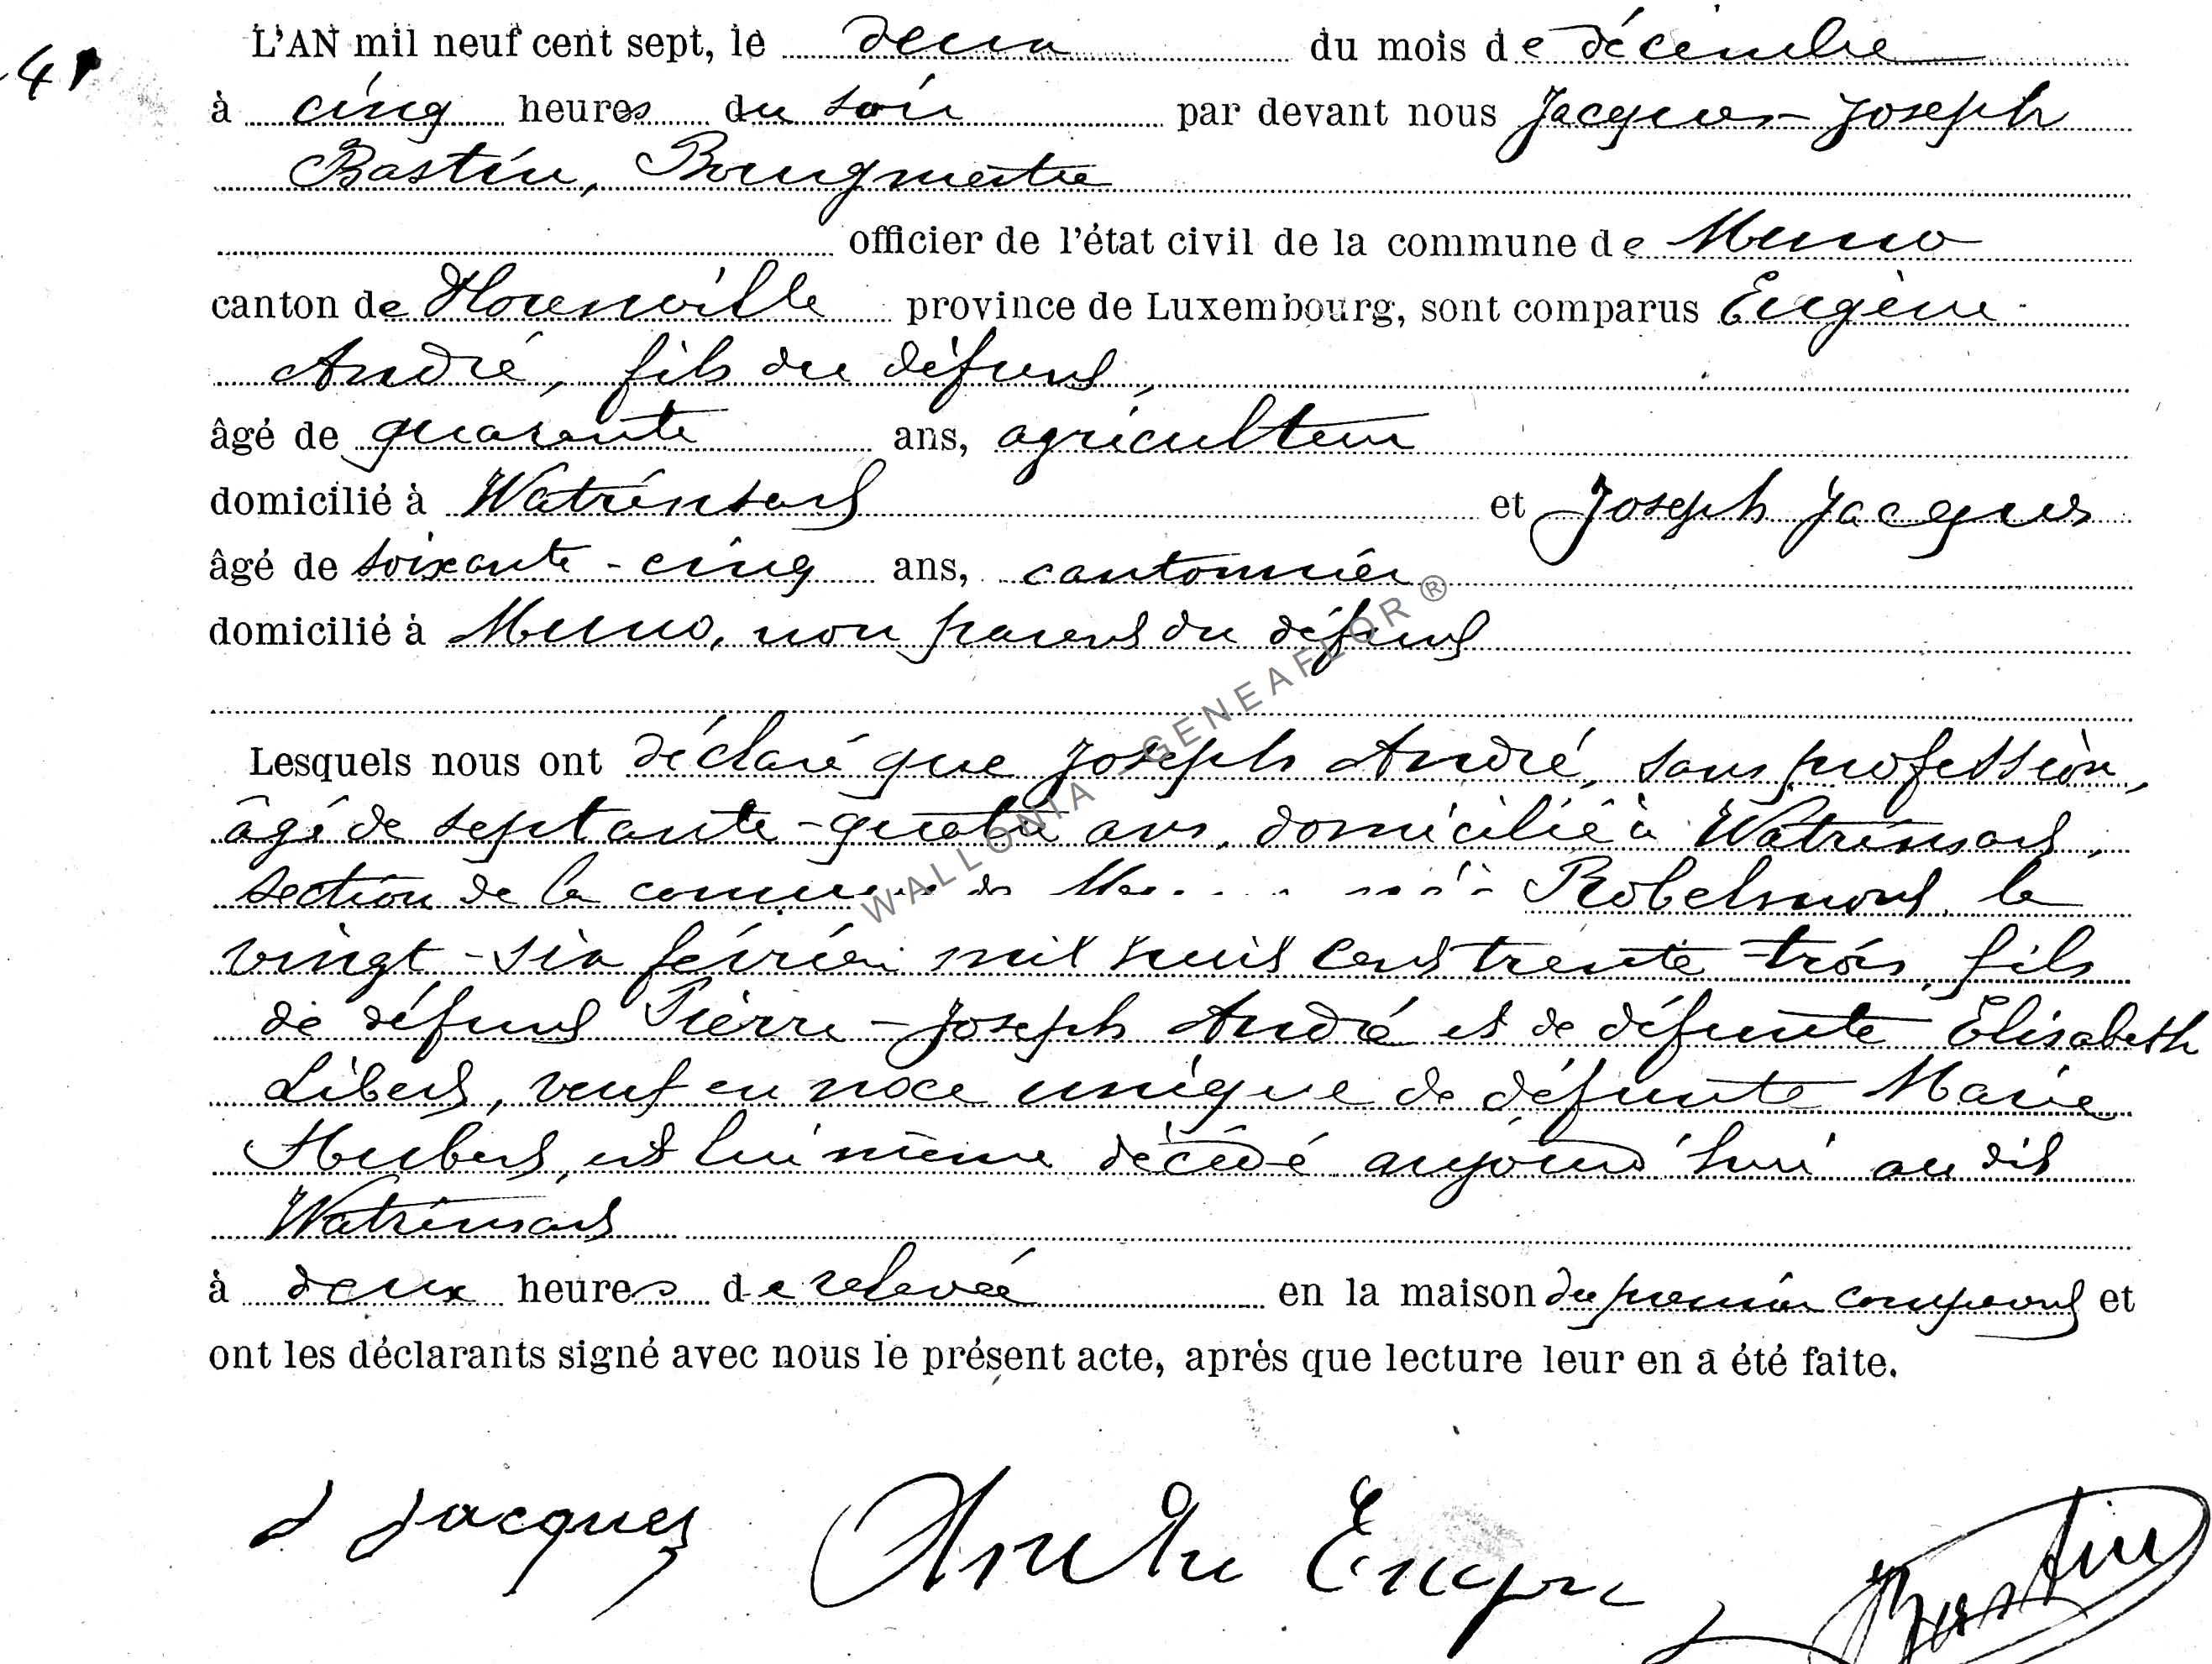 41
L'AN mil neuf cent sept, le deux du mois de décembre
à cinq heures du soir par devant nous Jacques-Joseph
Bastin, Bourgmestre
officier de l'état civil de la commune de Muno
canton de Florenville province de Luxembourg, sont comparus Eugène
André, fils du défunt,
âgé de quarante ans, agriculteur
domicilié à Watrinsart et Joseph Jacques
âgé de soixante-cinq ans, cantonnier
domicilié à Muno, non parent du défunt
Lesquels nous ont déclaré que Joseph André, sans profession,
âgé de septante-quatre ans, domicilié à Watrinsart,
section de la commune de Robelmont le
vingt-six février mil huit cent trente-trois, fils
de défunt Pierre-Joseph André et de défunte Elisabeth
Libert, veuf en noce unique de défunte Marie
Hubert, est lui même décédé aujourd'hui au dit
Watrinsart
à deux heures de relevée en la maison du premier comparant et
ont les déclarants signé avec nous le présent acte, après que lecture leur en a été faite.
J Jacques André Eugène Bastin
WALLONIA GENEAFLOR ®